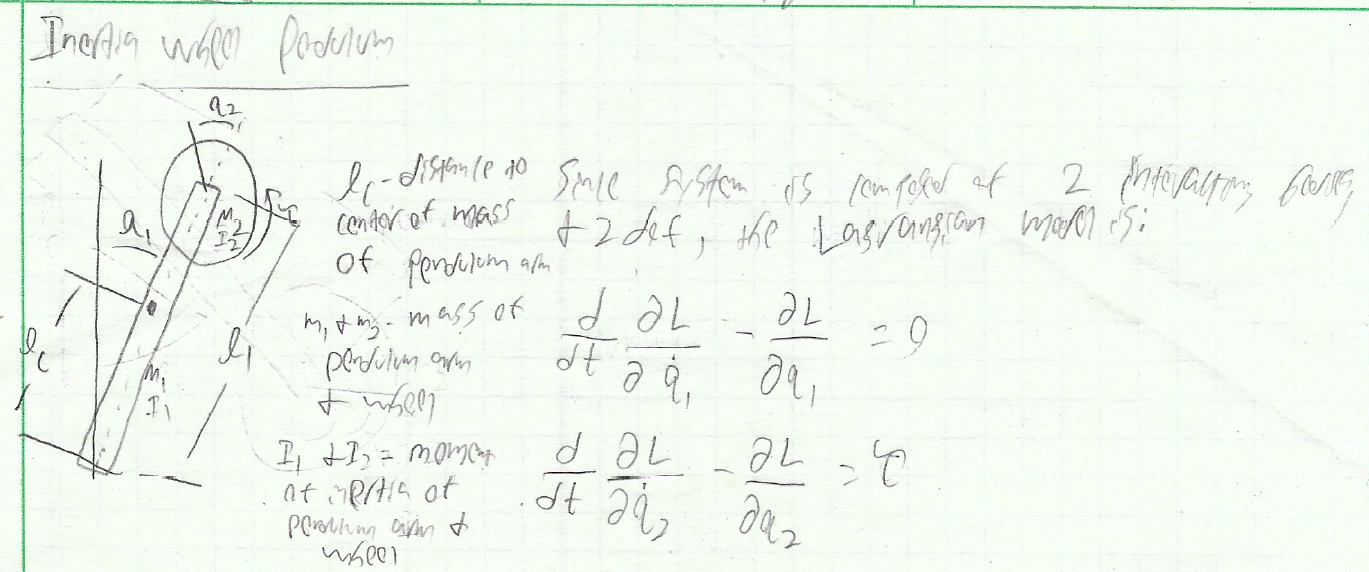 Inertia wheel Pendulum
q2
q1
M2
I2
τ
lc
l1
M1
I1
lc - distance to
center of mass
of pendulum arm
m1 + m2 - mass of
pendulum arm
+ wheel
I1 + I2 = moment
of inertia of
pendulum arm +
wheel
Since system is composed of 2 interacting bodies,
+ 2 dof, the Lagrangian model is:
d/dt ∂L/∂q̇1 - ∂L/∂q1 = 0
d/dt ∂L/∂q̇2 - ∂L/∂q2 = τ